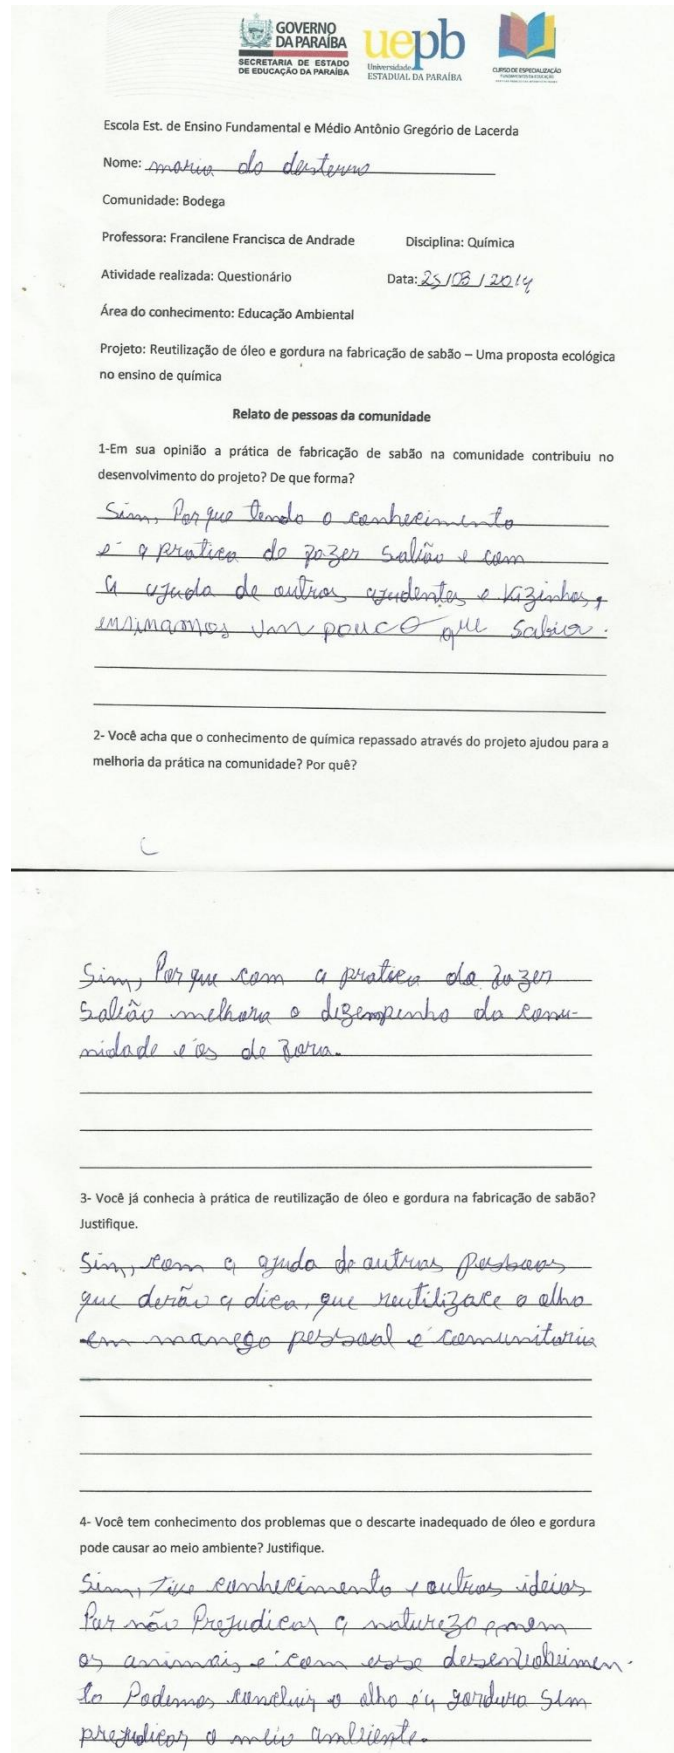 GOVERNO
DA PARAÍBA
SECRETARIA DE ESTADO
DE EDUCAÇÃO DA PARAÍBA
uepb
Universidade
ESTADUAL DA PARAÍBA
CURSO DE ESPECIALIZAÇÃO
Escola Est. de Ensino Fundamental e Médio Antônio Gregório de Lacerda
Nome: maria do desterro
Comunidade: Bodega
Professora: Francilene Francisca de Andrade Disciplina: Química
Atividade realizada: Questionário Data: 25/03/2014
Área do conhecimento: Educação Ambiental
Projeto: Reutilização de óleo e gordura na fabricação de sabão – Uma proposta ecológica
no ensino de química
Relato de pessoas da comunidade
1-Em sua opinião a prática de fabricação de sabão na comunidade contribuiu no
desenvolvimento do projeto? De que forma?
Sim, Porque tendo o conhecimento
e a pratica de fazer sabão e com
a ajuda de outros ajudentes e vizinhos,
ensinamos um pouco que sabia.
2- Você acha que o conhecimento de química repassado através do projeto ajudou para a
melhoria da prática na comunidade? Por quê?
Sim, Porque com a pratica da fazer
sabão melhora o dizempenho da comu-
nidade e os de fora.
3- Você já conhecia à prática de reutilização de óleo e gordura na fabricação de sabão?
Justifique.
Sim, com a ajuda de outras pessoas
que derão a dica, que reutilizace o olho
em manego pessoal e comunitaria
4- Você tem conhecimento dos problemas que o descarte inadequado de óleo e gordura
pode causar ao meio ambiente? Justifique.
Sim, tive conhecimento e outras ideias
Par não Prejudicar a natureza e nem
os animais e com esse
to Podemos concluir o olho e a gordura sim
prejudicar o meio ambiente.